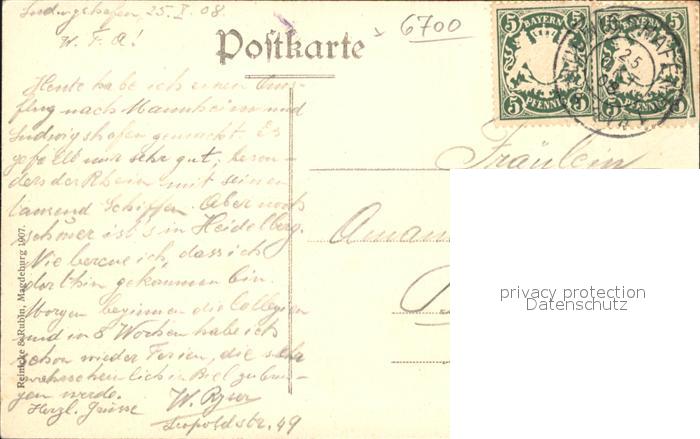 Ludwigshafen, 25. I. 08.
W. F. A!
Postkarte
6700
5 BAYERN 5
5 PFENNIG 5
5 BAYERN 5
5 PFENNIG 5
25
Heute habe ich einen Aus-
flug nach Mannheim und
Ludwigshafen gemacht. Es
gefällt mir sehr gut, beson-
ders der Rhein mit seinen
tausend Schiffen. Aber noch
schöner ist's in Heidelberg.
Nie bereue ich, dass ich
dorthin gekommen bin.
Morgen beginnen die Collegien
und in 8 Wochen habe ich
schon wieder Ferien, die ich
wahrscheinlich in Biel zubrin-
gen werde.
Herzl. Grüsse W. Ryser
Leopoldstr. 49
Reinicke & Rubin, Magdeburg 1907.
Fräulein
privacy protection
Datenschutz